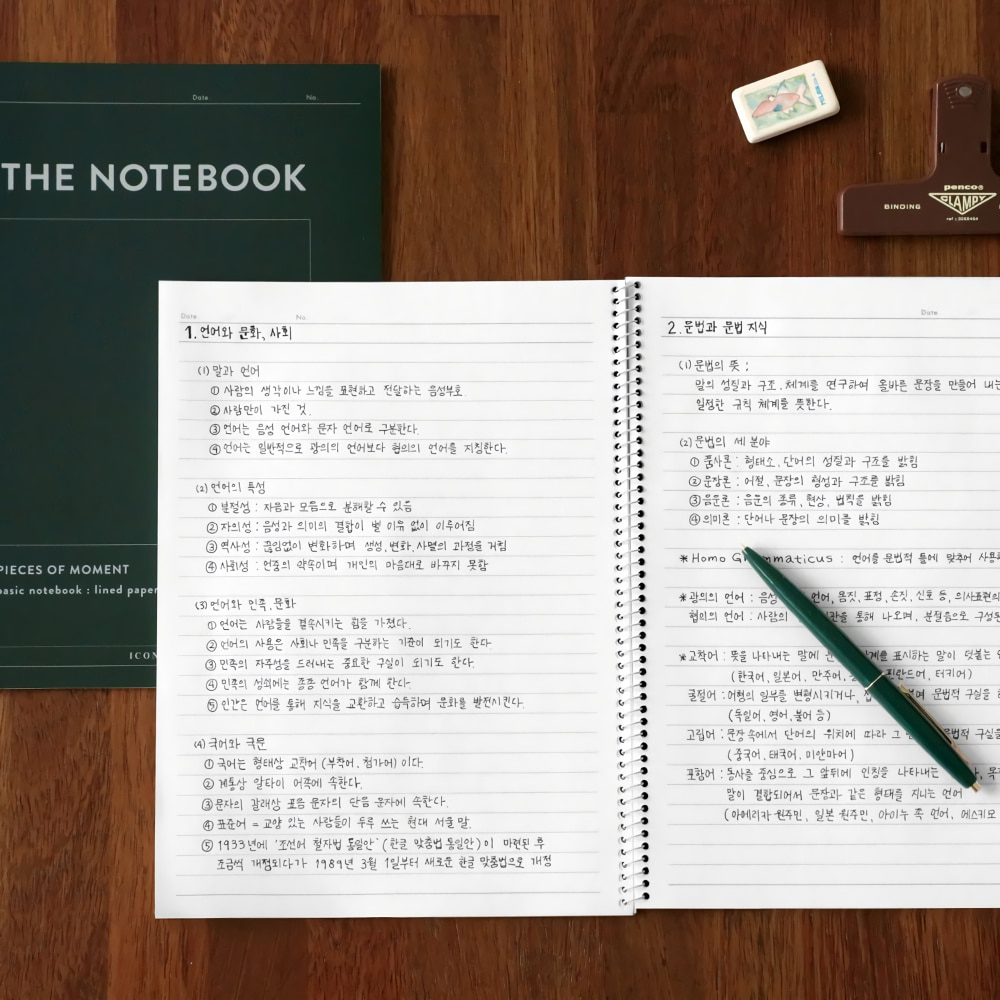 Date No.
THE NOTEBOOK
PIECES OF MOMENT
basic notebook : lined paper
ICON
penco®
CLAMPY
BINDING
Date No.
1. 언어와 문화, 사회
(1) 말과 언어
① 사람의 생각이나 느낌을 표현하고 전달하는 음성부호.
② 사람만이 가진 것.
③ 언어는 음성 언어와 문자 언어로 구분한다.
④ 언어는 일반적으로 광의의 언어보다 협의의 언어를 지칭한다.
(2) 언어의 특성
① 분절성 : 자음과 모음으로 분해할 수 있음
② 자의성 : 음성과 의미의 결합이 별 이유 없이 이루어짐
③ 역사성 : 끊임없이 변화하며 생성, 변화, 사멸의 과정을 거침
④ 사회성 : 언중의 약속이며 개인의 마음대로 바꾸지 못함
(3) 언어와 민족, 문화
① 언어는 사람들을 결속시키는 힘을 가졌다.
② 언어의 사용은 사회나 민족을 구분하는 기준이 되기도 한다.
③ 민족의 자주성을 드러내는 중요한 구실이 되기도 한다.
④ 민족의 성쇠에는 종종 언어가 함께 한다.
⑤ 인간은 언어를 통해 지식을 교환하고 습득하며 문화를 발전시킨다.
(4) 국어와 국문
① 국어는 형태상 교착어 (부착어, 첨가어) 이다.
② 계통상 알타이 어족에 속한다.
③ 문자의 갈래상 표음 문자의 단음 문자에 속한다.
④ 표준어 = 교양 있는 사람들이 두루 쓰는 현대 서울 말.
⑤ 1933년에 '조선어 철자법 통일안' (한글 맞춤법 통일안) 이 마련된 후
조금씩 개정되다가 1989년 3월 1일부터 새로운 한글 맞춤법으로 개정
Date
2. 문법과 문법 지식
(1) 문법의 뜻 :
말의 성질과 구조, 체계를 연구하여 올바른 문장을 만들어 내는
일정한 규칙 체계를 뜻한다.
(2) 문법의 세 분야
① 품사론 : 형태소, 단어의 성질과 구조를 밝힘
② 문장론 : 어절, 문장의 형성과 구조를 밝힘
③ 음운론 : 음운의 종류, 현상, 법칙을 밝힘
④ 의미론 : 단어나 문장의 의미를 밝힘
* Homo Grammaticus : 언어를 문법적 틀에 맞추어 사용
* 광의의 언어 : 음성 언어, 몸짓, 표정, 손짓, 신호 등, 의사표현의
협의의 언어 : 사람의 통해 나오며, 분절음으로 구성된
* 교착어 : 뜻을 나타내는 말에 관계를 표시하는 말이 덧붙는
(한국어, 일본어, 만주어, 핀란드어, 터키어)
굴절어 : 어형의 일부를 변형시키거나, 문법적 구실을
(독일어, 영어, 불어 등)
고립어 : 문장 속에서 단어의 위치에 따라 그 문법적 구실을
(중국어, 태국어, 미얀마어)
포합어 : 동사를 중심으로 그 앞뒤에 인칭을 나타내는
말이 결합되어서 문장과 같은 형태를 지니는 언어
(아메리카 원주민, 일본 원주민, 아이누 족 언어, 에스키모